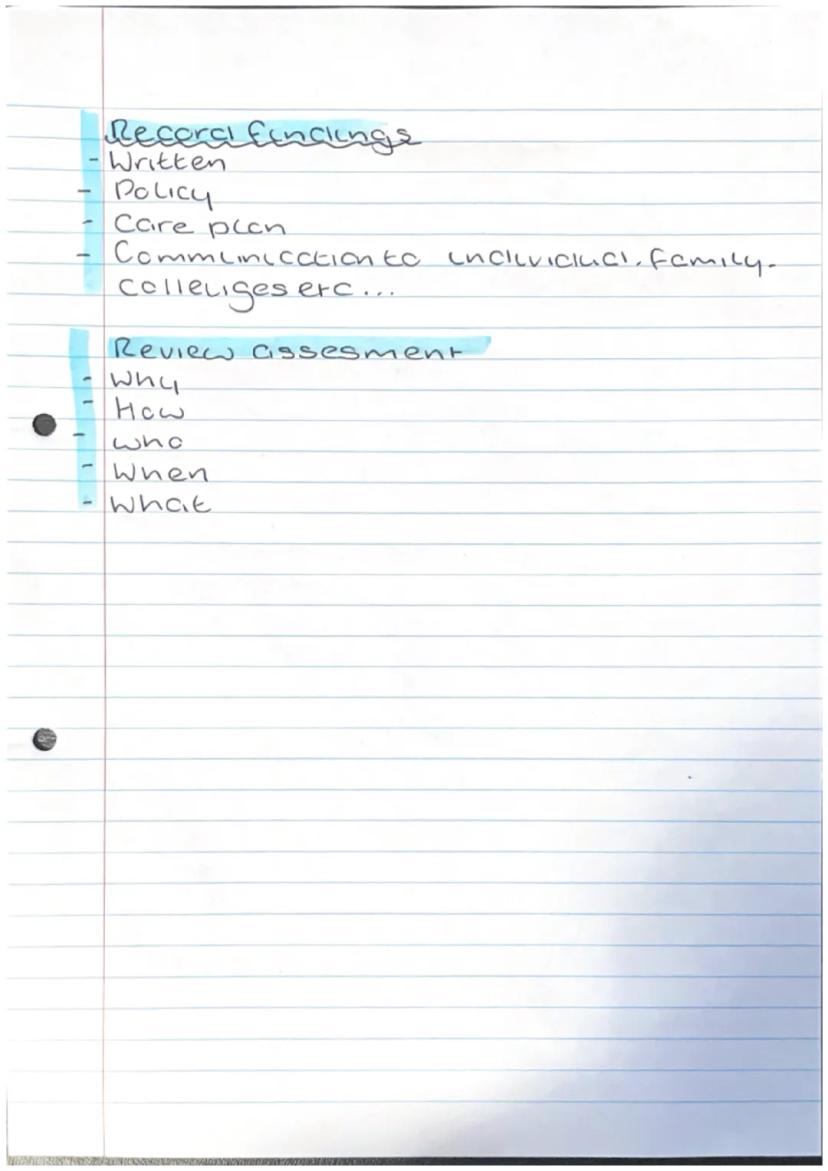 Record findings
- Written
- Policy
- Care plan
- Communication to individual. family.
colleuiges etc...
Review assesment
- Why
- How
- who
- When
- What